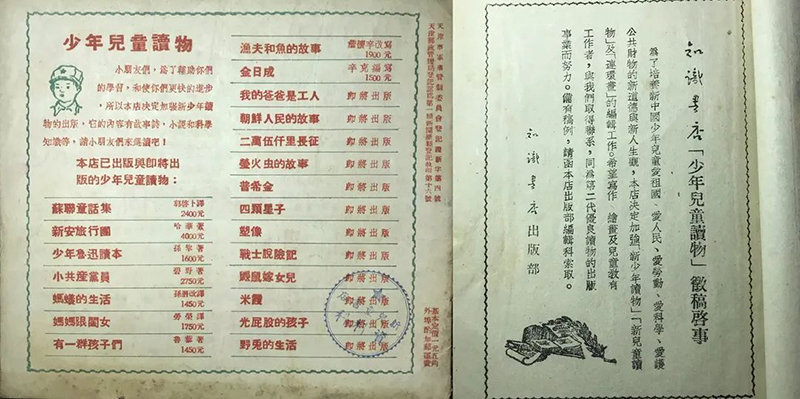 少年兒童讀物
小朋友們，爲了輔助你們
的學習，和使你們更快的進步
，所以本店决定加强新少年讀
物的出版，它的內容有故事詩，小說和科學
知識等，請小朋友們來選讀吧！
本店已出版與即將出
版的少年兒童讀物：
蘇聯童話集
2400元
新安旅行團 哈華著
4000元
少年魯迅讀本 孫犁著
1600元
小共產黨員 碧野著
2750元
螞蟻的生活
1450元
媽媽跟閨女 勞榮譯
1750元
有一群孩子們
1450元
漁夫和魚的故事
1900元
金日成 辛克編寫
1500元
我的爸爸是工人 即將出版
朝鮮人民的故事 即將出版
二萬伍仟里長征 即將出版
螢火虫的故事 即將出版
普希金 即將出版
四顆星子 即將出版
塑像 即將出版
戰士脫險記 即將出版
鼴鼠嫁女兒 即將出版
米霞 即將出版
光屁股的孩子 即將出版
野兎的生活 即將出版
知識書店「少年兒童讀物」徵稿啓事
爲了培養新中國少年兒童愛祖國、愛人民、愛勞動、愛科學、愛護
公共財物的新道德與新人生觀，本店决定加強「新少年讀物」「新兒童讀
物」及「連環畫」的編輯工作。希望寫作、繪畫及兒童敎育
工作者，與我們取得聯系，同爲第二代優良讀物的出版
事業而努力。備有稿例，請函本店出版部編輯科索取。
知識書店出版部